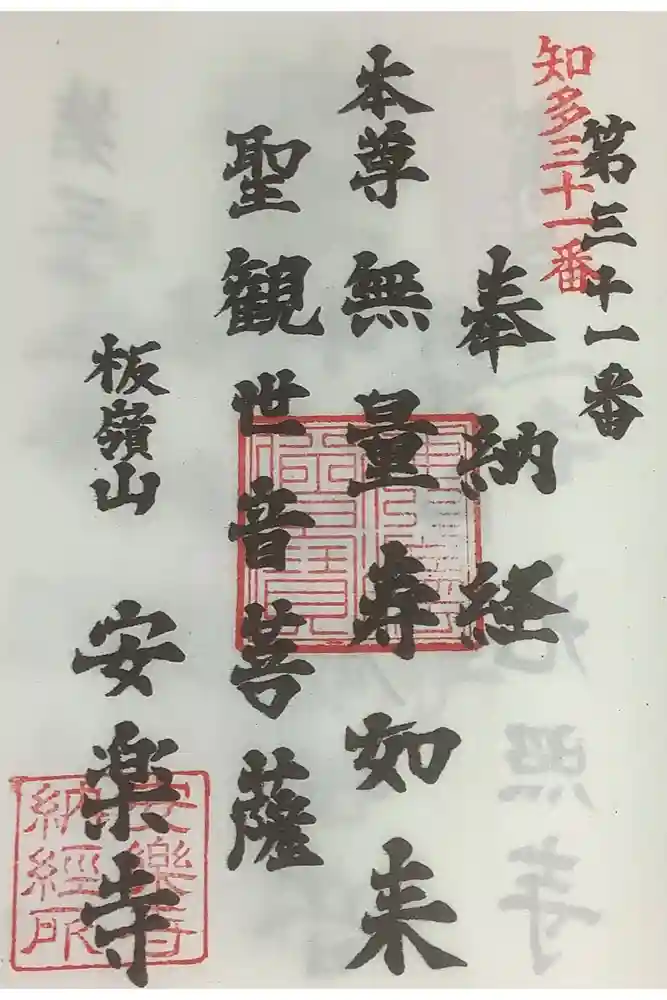 知多三十一番
第三十一番
奉納経
本尊 無量寿如来
聖観世音菩薩
板嶺山 安楽寺
安樂寺
納經所